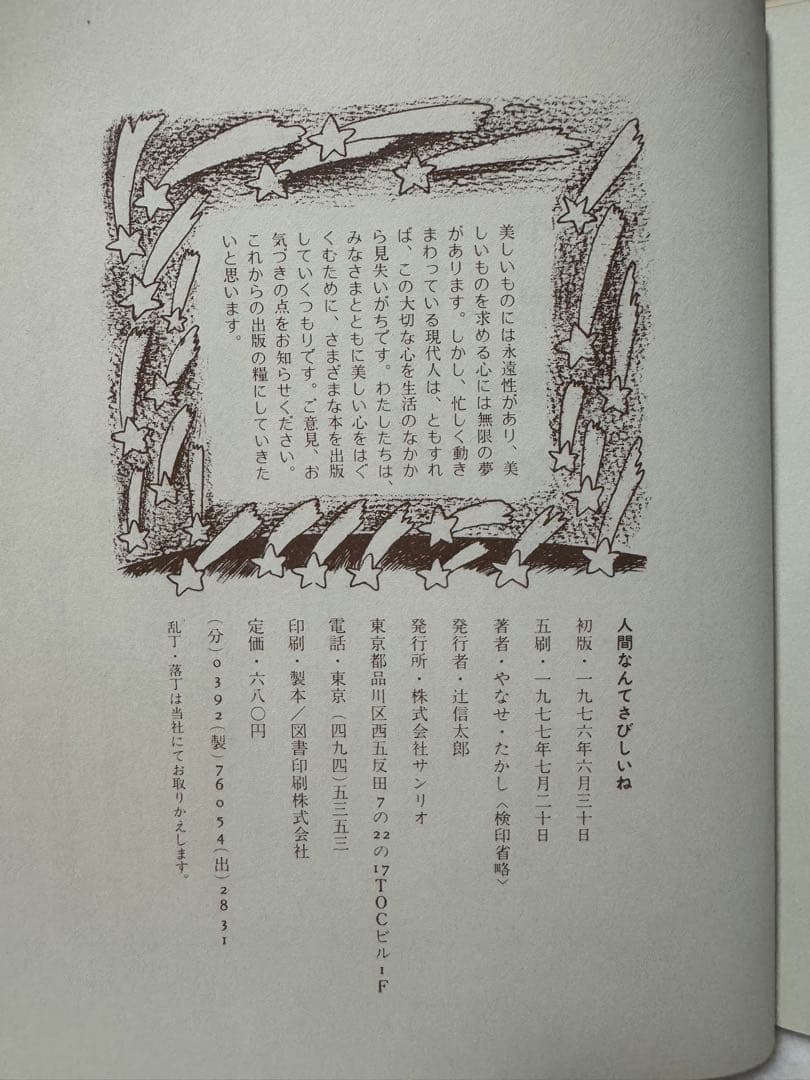 美しいものには永遠性があり、美
しいものを求める心には無限の夢
があります。しかし、忙しく動き
まわっている現代人は、ともすれ
ば、この大切な心を生活のなかか
ら見失いがちです。わたしたちは、
みなさまとともに美しい心をはぐ
くむために、さまざまな本を出版
していくつもりです。ご意見、お
気づきの点をお知らせください。
これからの出版の糧にしていきた
いと思います。
人間なんてさびしいね
初版・一九七六年六月三十日
五刷・一九七七年七月二十日
著者・やなせ・たかし〈検印省略〉
発行者・辻信太郎
発行所・株式会社サンリオ
東京都品川区西五反田7の22の17TOCビル1F
電話・東京（四九四）五三五三
印刷・製本／図書印刷株式会社
定価・六八〇円
(分)0392(製)76054(出)2831
乱丁・落丁は当社にてお取りかえします。